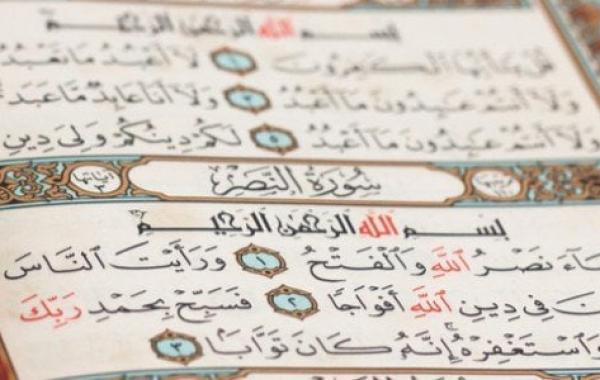 بِسْمِ ٱللَّهِ ٱلرَّحْمَٰنِ ٱلرَّحِيمِ
قُلْ يَا أَيُّهَا ٱلْكَافِرُونَ ١ لَا أَعْبُدُ مَا تَعْبُدُ
وَلَا أَنتُمْ عَابِدُونَ مَا أَعْبُدُ ٣ وَلَا أَنَا عَابِدٌ مَّا عَبَد
وَلَا أَنتُمْ عَابِدُونَ مَا أَعْبُدُ ٥ لَكُمْ دِينُكُمْ وَلِيَ دِينِ
سُورَةُ ٱلنَّصْرِ
بِسْمِ ٱللَّهِ ٱلرَّحْمَٰنِ ٱلرَّحِيمِ
جَاءَ نَصْرُ ٱللَّهِ وَٱلْفَتْحُ ١ وَرَأَيْتَ ٱلنَّاسَ
فِي دِينِ ٱللَّهِ أَفْوَاجًا ٢ فَسَبِّحْ بِحَمْدِ رَبِّكَ
وَٱسْتَغْفِرْهُ إِنَّهُ كَانَ تَوَّابًا ٣